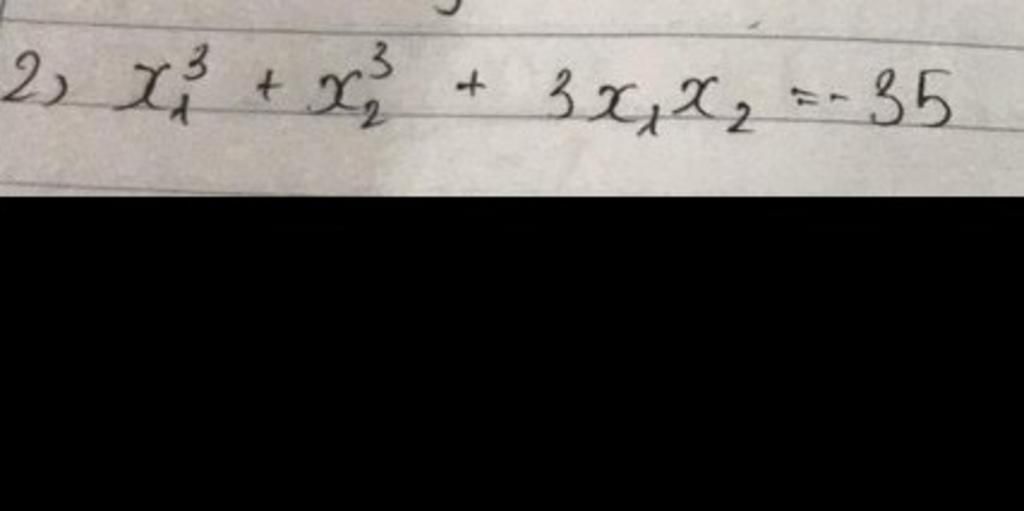 2) x₁³ + x₂³ + 3x₁x₂ = -35